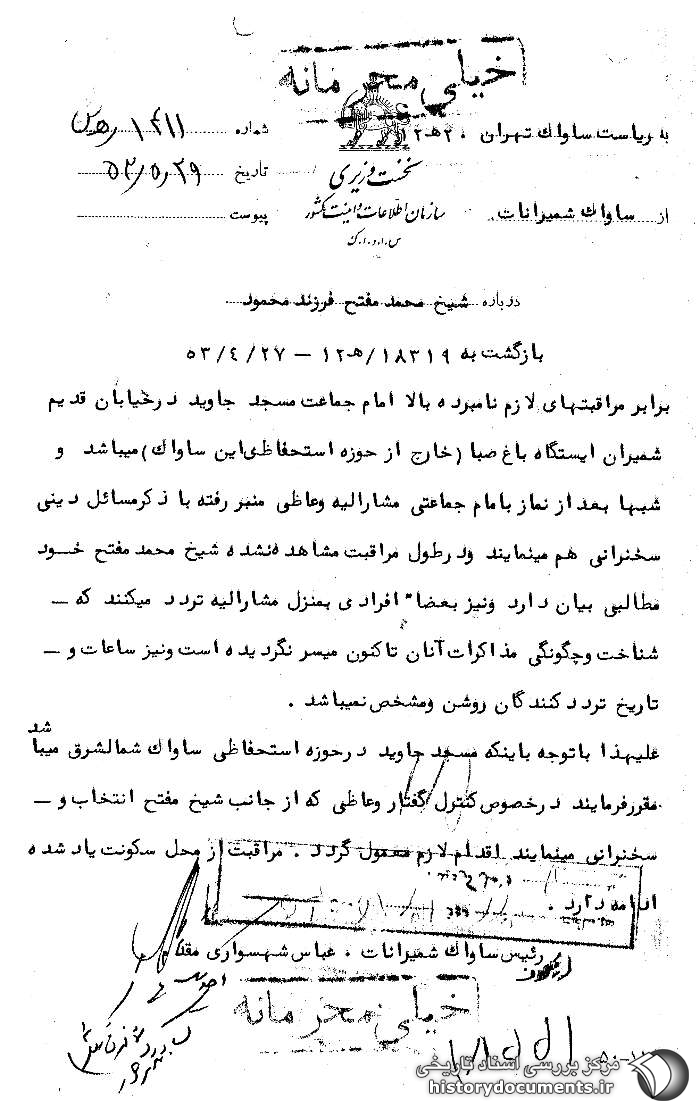 خیلی محرمانه
به ریاست ساواك تهران ۰ ۲۰ ه‍ ۱۲
شماره ۱۴۱۱
نخست وزیری
تاریخ ۵۳/۵/۲۹
از ساواك شمیرانات
سازمان اطلاعات و امنیت کشور
پیوست
س.ا.و.ا.ک
درباره شیخ محمد مفتح فرزند محمود
بازگشت به ۱۸۳۱۹/ه‍ ۱۲ – ۵۳/۴/۲۷
برابر مراقبتهای لازم نامبرده بالا امام جماعت مسجد جاوید درخیابان قدیم
شمیران ایستگاه باغ صبا (خارج از حوزه استحفاظی این ساواك) میباشد و
شبها بعد از نماز بامام جماعتی مشارالیه وعاظی منبر رفته با ذکرمسائل دینی
سخنرانی هم مینمایند ودرطول مراقبت مشاهده نشده شیخ محمد مفتح خود
مطالبی بیان دارد ونیز بعضا" افرادی بمنزل مشارالیه تردد میکنند که –
شناخت وچگونگی مذاکرات آنان تاکنون میسر نگردیده است ونیز ساعات و –
تاریخ تردد کنندگان روشن ومشخص نمیباشد .
علیهذا باتوجه باینکه مسجد جاوید درحوزه استحفاظی ساواك شمالشرق میباشد
مقررفرمایند درخصوص کنترل گفتار وعاظی که از جانب شیخ مفتح انتخاب و –
سخنرانی مینمایند اقدام لازم معمول گردد . مراقبت از محل سکونت یاد شده
ادامه دارد .
رئیس ساواك شمیرانات ، عباس شهسواری مقدم
خیلی محرمانه
مرکز بررسی اسناد تاریخی
historydocuments.ir